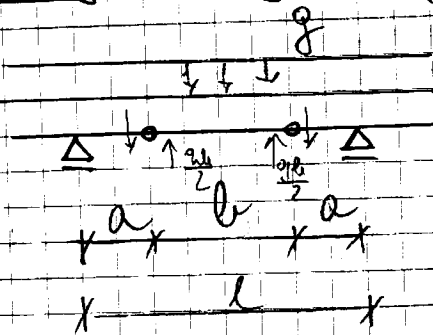 q
qb/2 qb/2
a b a
l